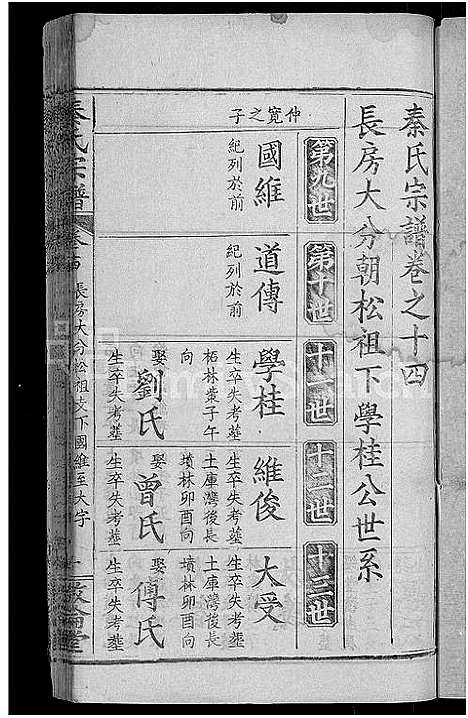 秦氏宗譜卷之十四
長房大分朝松祖下學桂公世系
第九世
第十世
十一世
十二世
十三世
仲寬之子
國維
紀列於前
道傳
紀列於前
學桂
生卒失考塟
柘林棗子午
向
娶劉氏
生卒失考塟
維俊
生卒失考塟
土庫灣後長
墳林卯酉向
娶曾氏
生卒失考塟
大受
生卒失考塟
土庫灣後長
墳林卯酉向
娶傅氏
生卒失考塟
秦氏宗譜
長房大分松祖支下國維至大字
一
倫堂